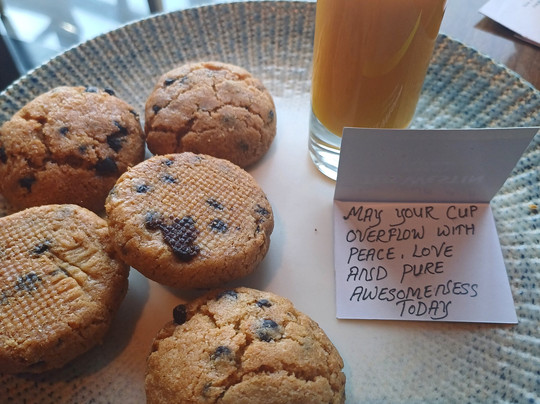 MAY YOUR CUP
OVERFLOW WITH
PEACE, LOVE
AND PURE
AWESOMENSESS
TODAY